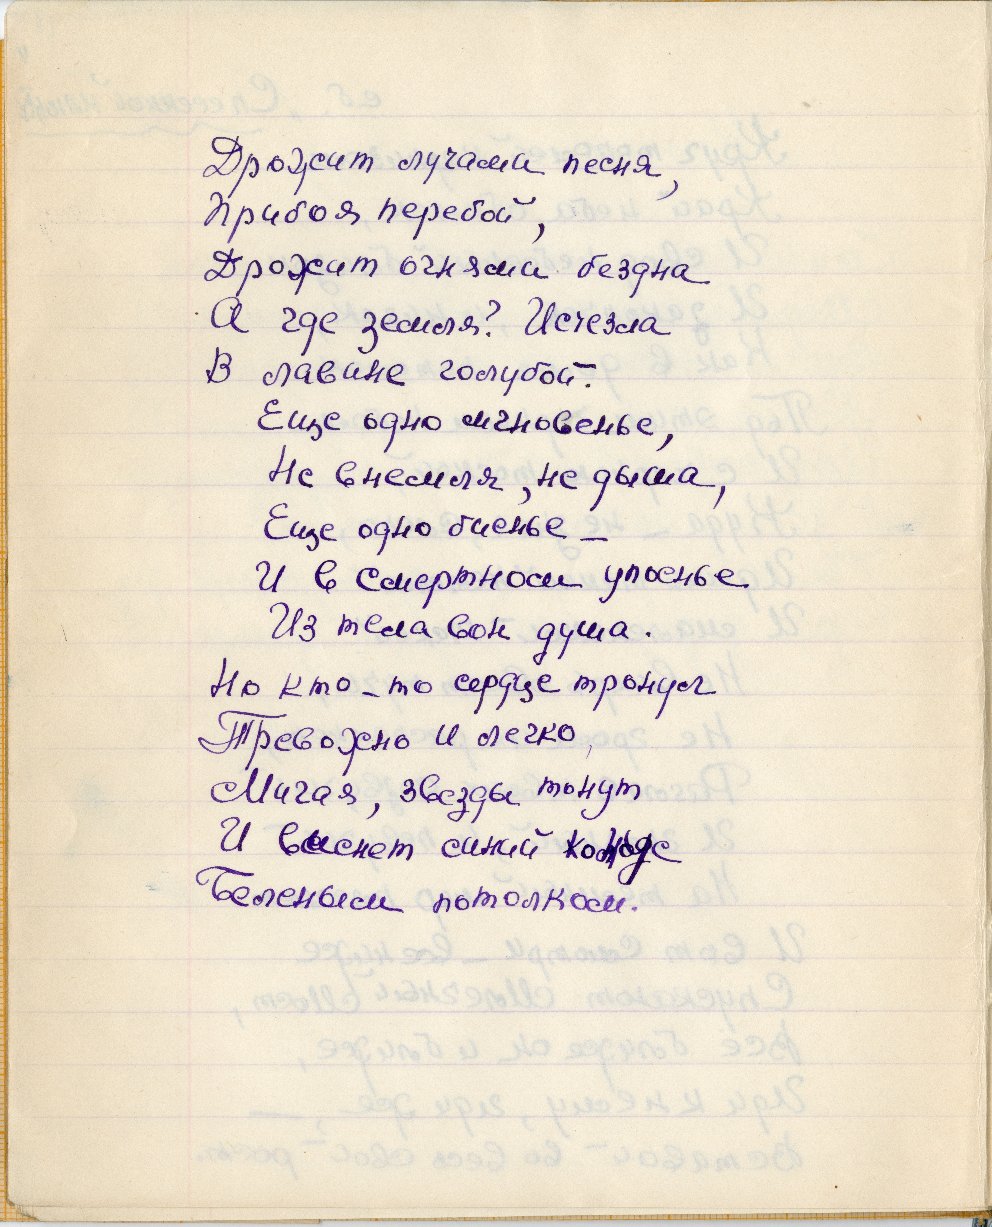 Дрожит лучами песня,
Прибоя перебой,
Дрожит огнями бездна
А где земля? Исчезла
В лавине голубой.
Еще одно мгновенье,
Не внемля, не дыша,
Еще одно биенье –
И в смертном упоенье
Из тела вон душа.
Но кто-то сердце тронул
Тревожно и легко,
Мигая, звезды тонут
И виснет синий
Беленым потолком.